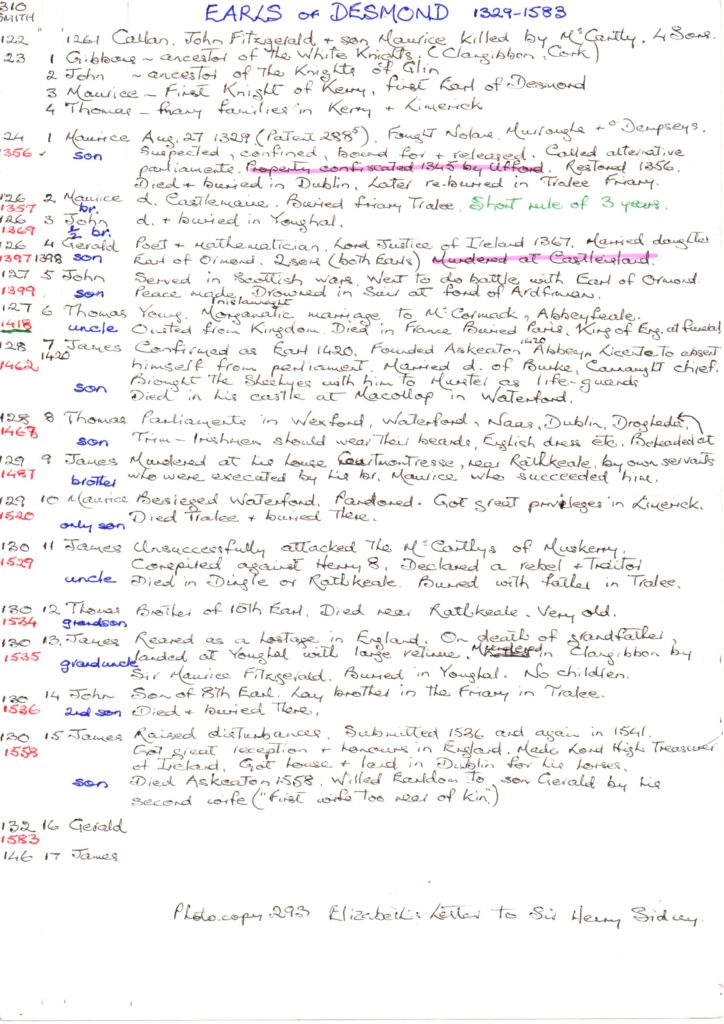 310 EARLS of DESMOND 1329-1583
SMITH
122 " 1261 Callan. John Fitzgerald + son Maurice killed by McCarthy. 4 Sons.
23 1 Gibbons ~ ancestor of the White Knights. (Clangibbon, Cork)
2 John ~ ancestor of the Knights of Glin
3 Maurice - First Knight of Kerry, first Earl of Desmond
4 Thomas - many families in Kerry + Limerick
24 1 Maurice Aug. 27 1329 (Patent 288s). Fought Nolans, Murroughs + O'Dempseys.
1356 son Suspected, confined, bound for + released. Called alternative
parliaments. Property confiscated 1345 by Ufford. Restored 1356.
Died + buried in Dublin, Later re-buried in Tralee Friary.
126 2 Maurice d. Castlemaine. Buried friary Tralee. Short rule of 3 years.
1357 br.
126 3 John d. + buried in Youghal.
1369 ½ br.
126 4 Gerald Poet + Mathematician. Lord Justice of Ireland 1367. Married daughter
1397 1398 son Earl of Ormond. 2 sons (both Earls) Murdered at Castleisland.
127 5 John Served in Scottish wars. Went to do battle with Earl of Ormond.
1399 son Peace made. Drowned in Suir at ford of Ardfinnan.
127 6 Thomas Young. Morganatic marriage to McCormack, Abbeyfeale.
1418 uncle Ousted from Kingdom. Died in France Buried Paris. King of Eng. at funeral
128 7 James Confirmed as Earl 1420. Founded Askeaton Abbey 1420, Licence to absent
1462 1420 himself from parliament. Married d. of Burke, Connaught chief.
Brought the Sheehyes with him to Munster as life-guards
son Died in his castle at Macollop in Waterford.
128 8 Thomas Parliaments in Wexford, Waterford, Naas, Dublin, Drogheda,
1467 son Trim - Irishmen should wear their beards, English dress etc. Beheaded at
129 9 James Murdered at his house Courtmontresse, near Rathkeale, by own servants
1487 brother who were executed by his br. Maurice who succeeded him.
129 10 Maurice Besieged Waterford. Pardoned. Got great privileges in Limerick.
1520 only son Died Tralee + buried there.
130 11 James Unsuccessfully attacked the McCarthys of Muskerry.
1529 Conspired against Henry 8. Declared a rebel + traitor
uncle Died in Dingle or Rathkeale. Buried with father in Tralee.
130 12 Thomas Brother of 10th Earl. Died near Rathkeale. Very old.
1534 grandson
130 13. James Reared as a hostage in England. On death of grandfather,
1535 granduncle landed at Youghal with large retinue. Murdered in Clangibbon by
Sir Maurice Fitzgerald. Buried in Youghal. No children.
130 14 John Son of 8th Earl. Lay brother in the Friary in Tralee.
1536 2nd son Died + buried there.
130 15 James Raised disturbances. Submitted 1536 and again in 1541.
1558 Got great reception + honours in England. Made Lord High Treasurer
of Ireland. Got house + land in Dublin for his horses.
son Died Askeaton 1558. Willed Earldom to son Gerald by his
second wife ("First wife too near of kin")
132 16 Gerald
1583
146 17 James
Photocopy 293 Elizabeth's Letter to Sir Henry Sidney.